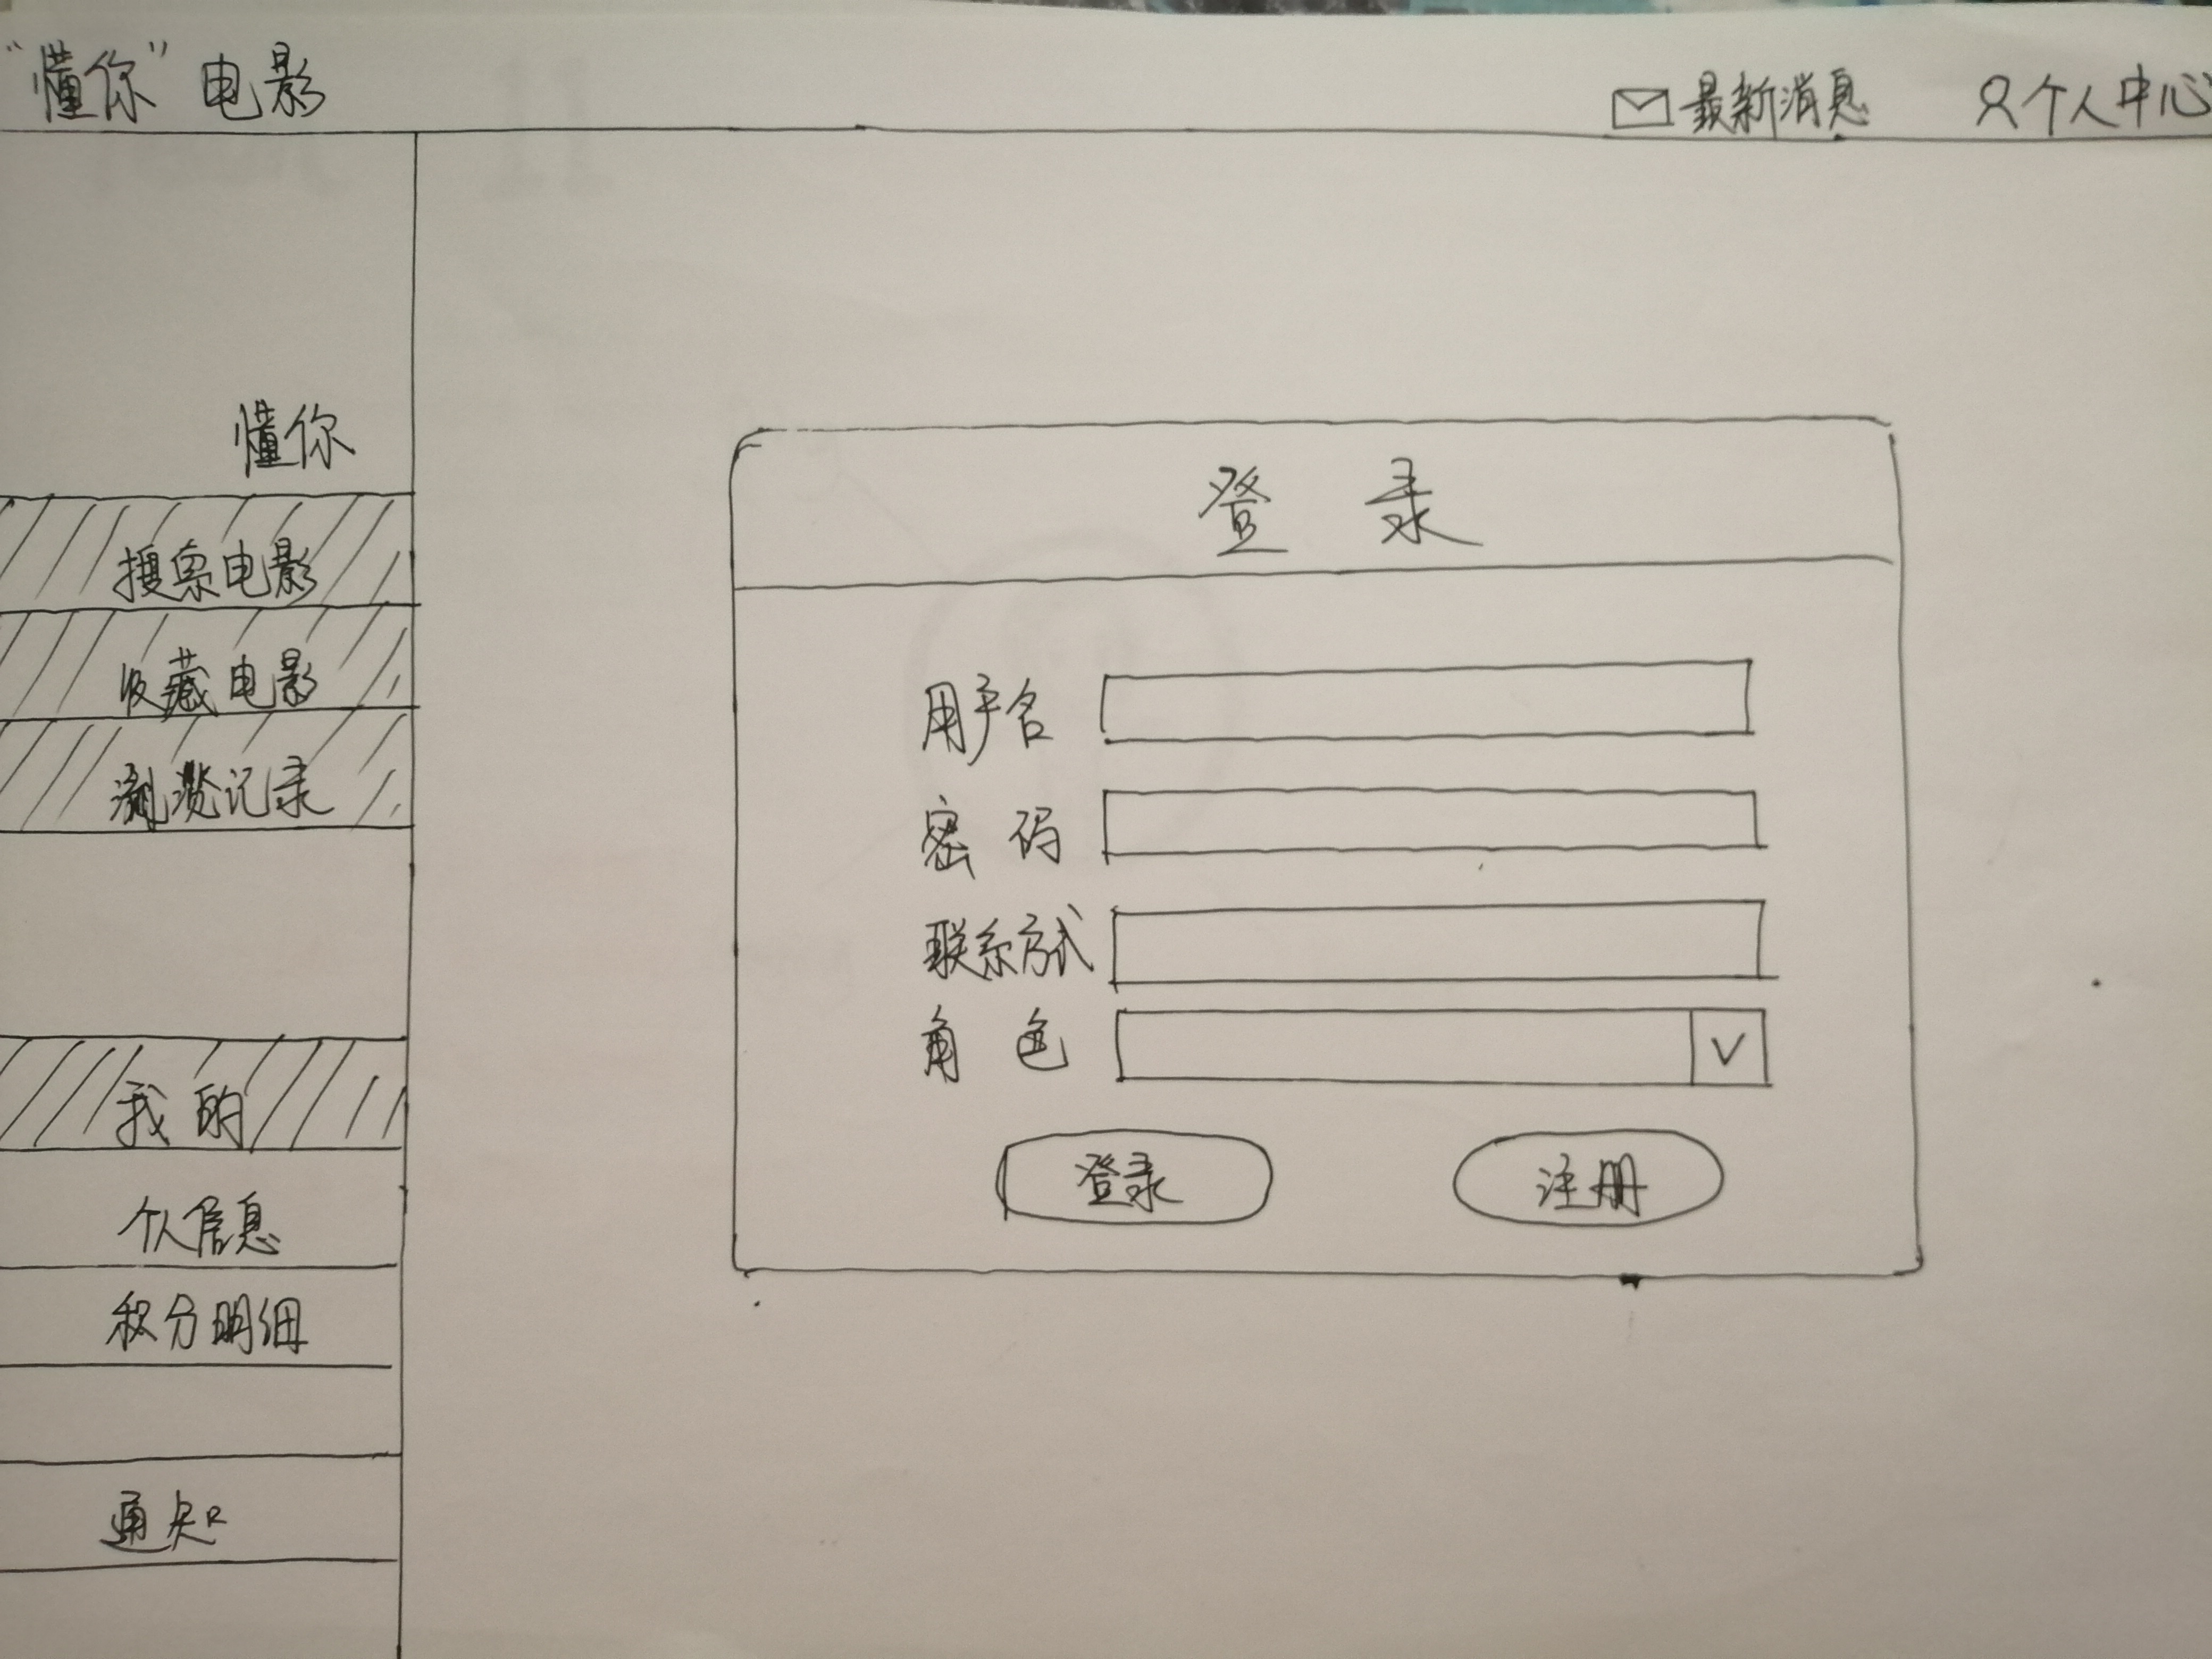 “懂你”电影
最新消息 个人中心
懂你
搜索电影
收藏电影
浏览记录
我的
个人信息
积分明细
通知
登 录
用户名
密 码
联系方式
角 色
登录 注册